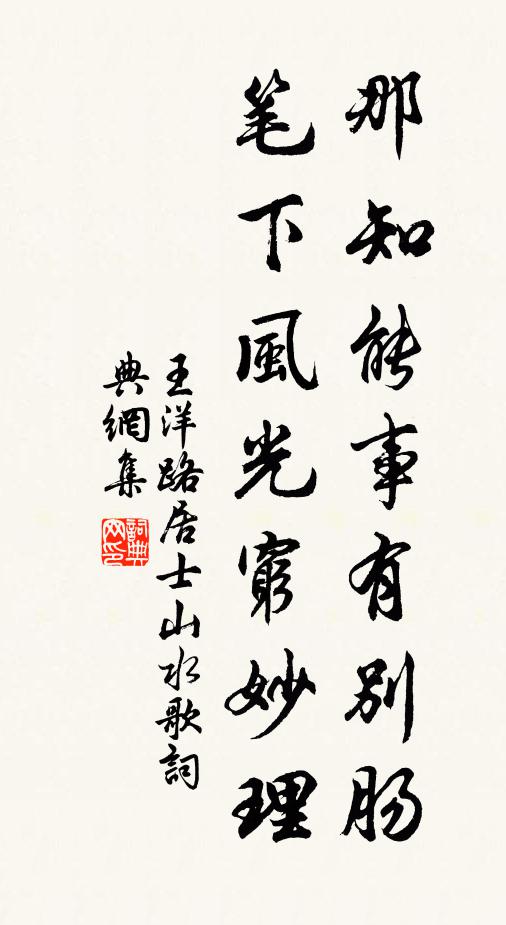 那知能事有別肠
笔下風光窮妙理
王洋路居士山水歌詞
典網集
詞典
网印